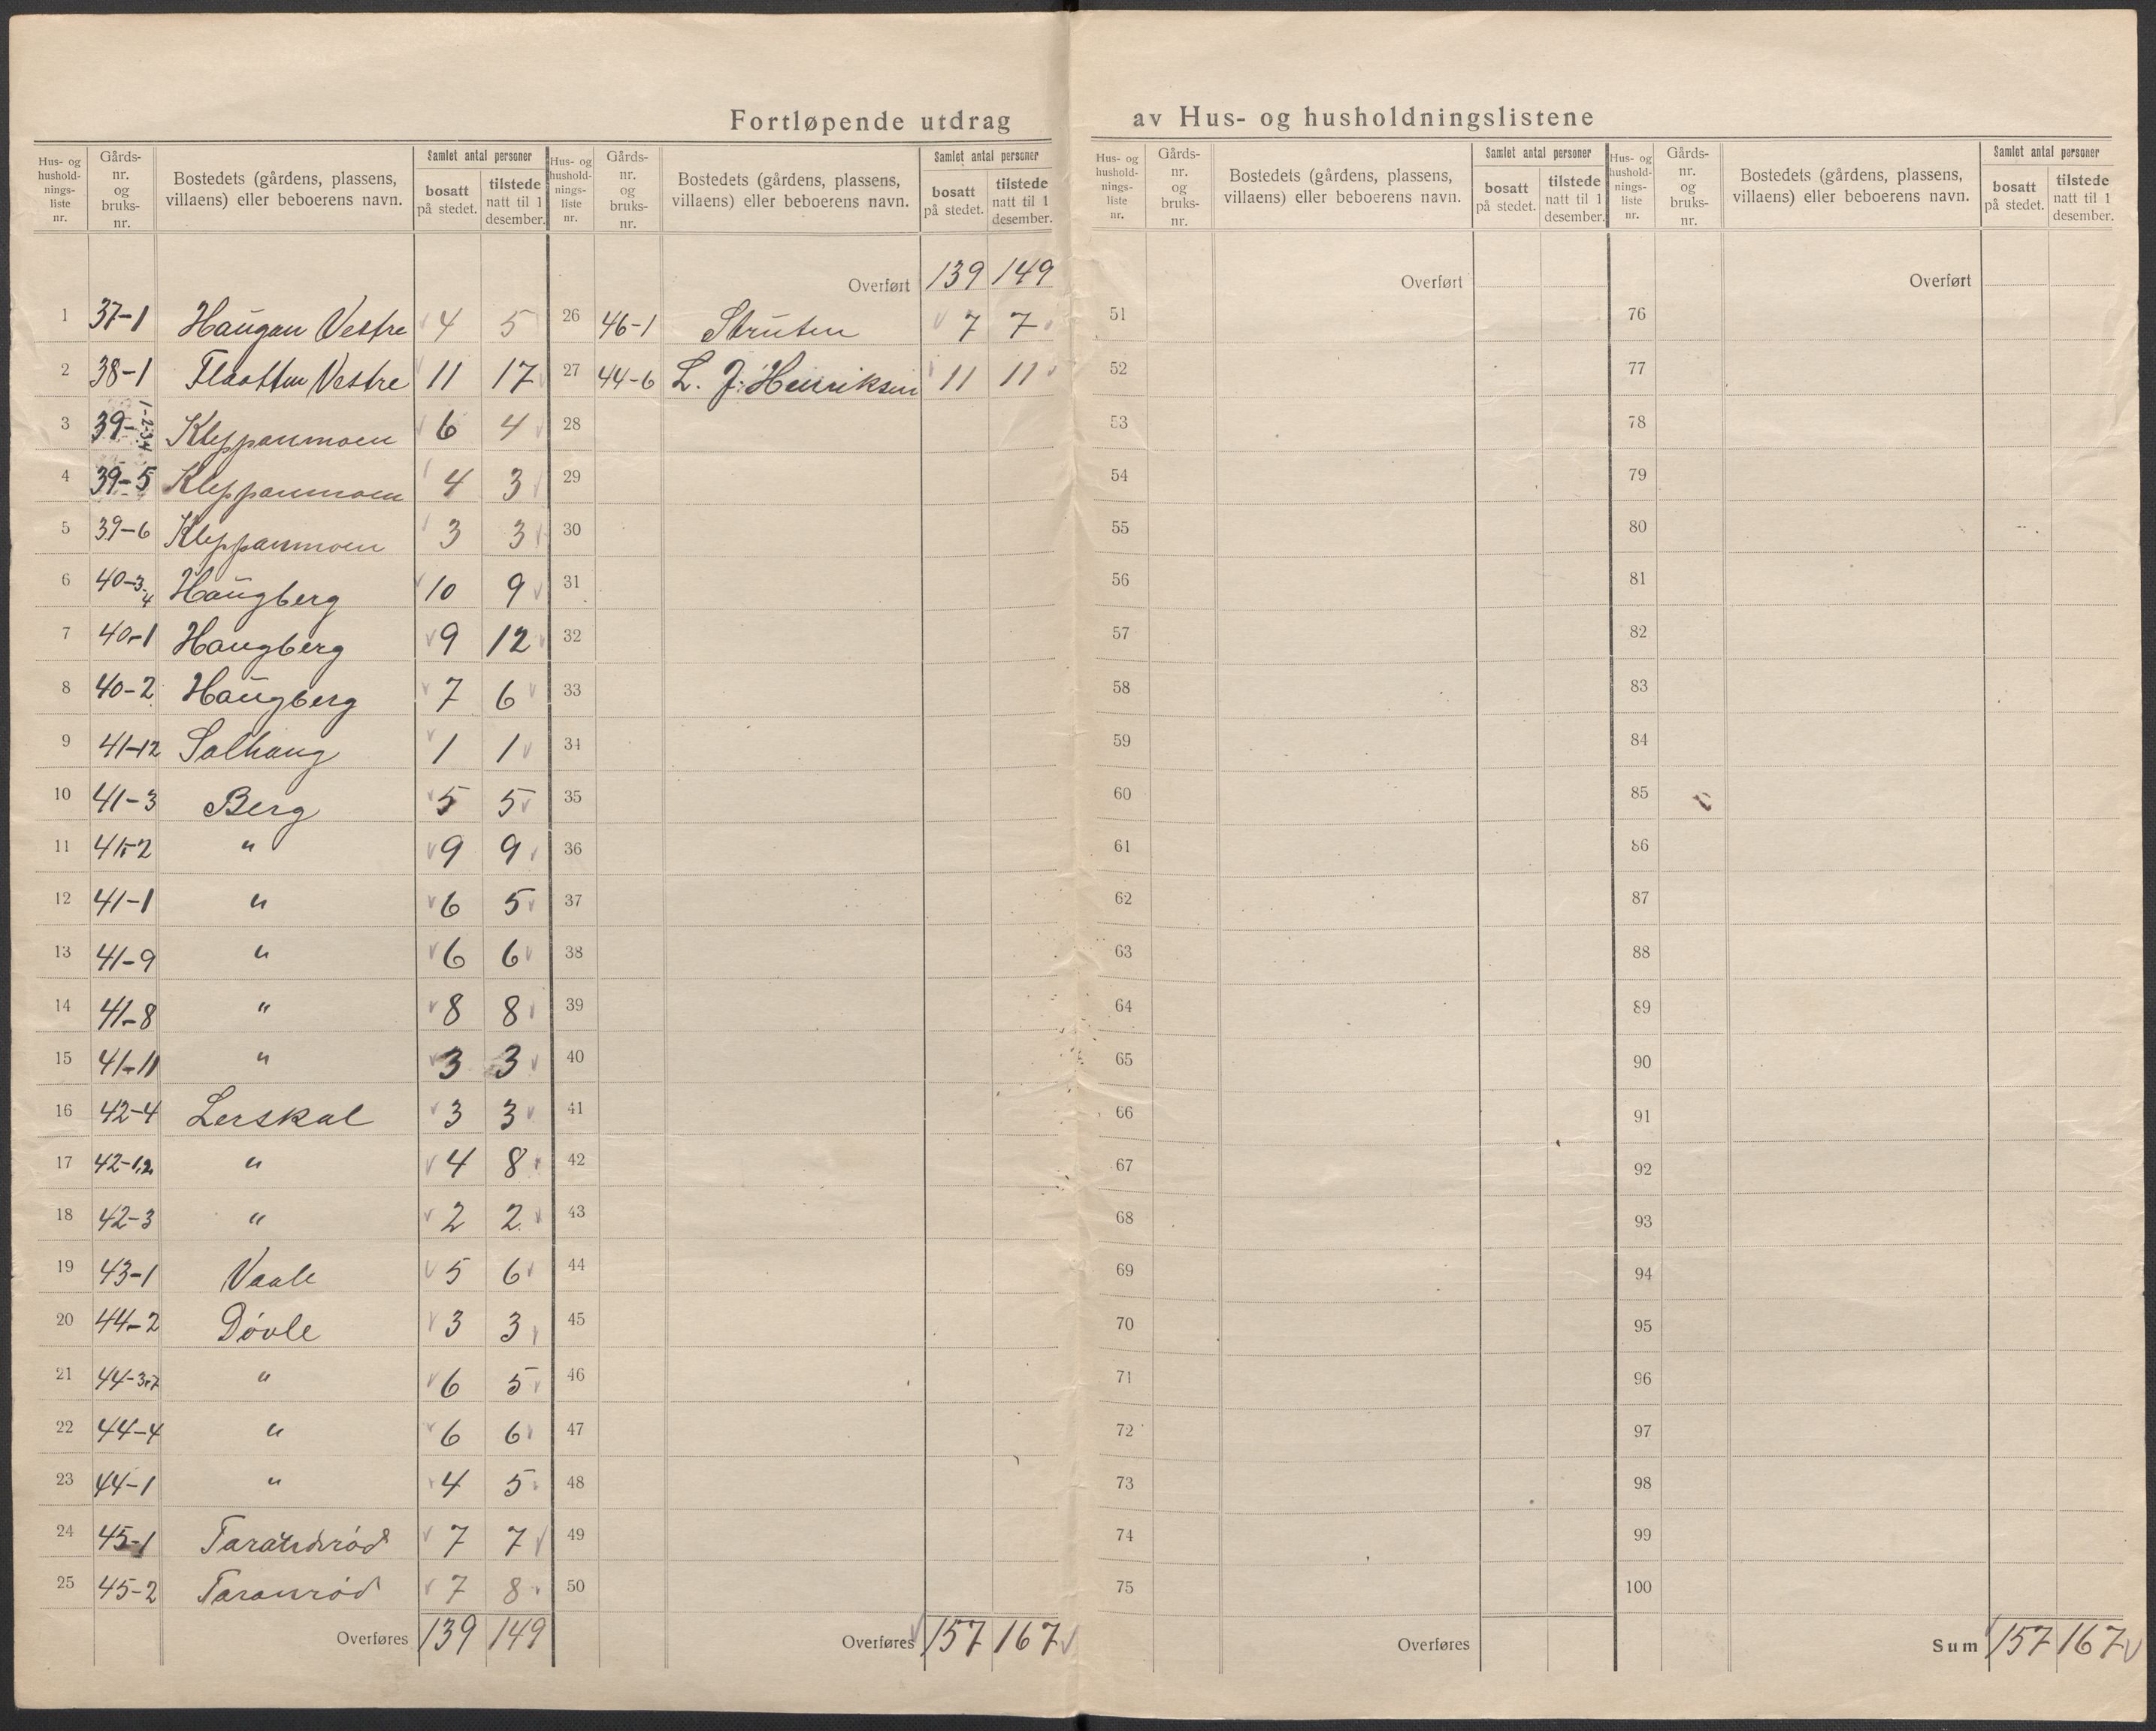 Fortløpende utdrag av Hus- og husholdningslistene
Hus- og husholdnings-liste nr. | Gårds-nr. og bruks-nr. | Bostedets (gårdens, plassens, villaens) eller beboerens navn. | Samlet antal personer bosatt på stedet. | tilstede natt til 1 desember.
1 37-1 Haugan Vestre 4 5
2 38-1 Flaatten Vestre 11 17
3 39-1-2-3-4 Kleppanmoen 6 4
4 39-5 Kleppanmoen 4 3
5 39-6 Kleppanmoen 3 3
6 40-3-4 Haugberg 10 9
7 40-1 Haugberg 9 12
8 40-2 Haugberg 7 6
9 41-12 Solhaug 1 1
10 41-3 Berg 5 5
11 41-2 " 9 9
12 41-1 " 6 5
13 41-9 " 6 6
14 41-8 " 8 8
15 41-11 " 3 3
16 42-4 Lerskal 3 3
17 42-1,2 " 4 8
18 42-3 " 2 2
19 43-1 Vaale 5 6
20 44-2 Døvle 3 3
21 44-3,7 " 6 5
22 44-4 " 6 6
23 44-1 " 4 5
24 45-1 7 7
25 45-2 Taranrød 7 8
Overføres 139 149
Hus- og husholdnings-liste nr. | Gårds-nr. og bruks-nr. | Bostedets (gårdens, plassens, villaens) eller beboerens navn. | Samlet antal personer bosatt på stedet. | tilstede natt til 1 desember.
Overført 139 149
26 46-1 Struten 7 7
27 44-6 L. J. Henriksen 11 11
28
29
30
31
32
33
34
35
36
37
38
39
40
41
42
43
44
45
46
47
48
49
50
Overføres 157 167
Hus- og husholdnings-liste nr. | Gårds-nr. og bruks-nr. | Bostedets (gårdens, plassens, villaens) eller beboerens navn. | Samlet antal personer bosatt på stedet. | tilstede natt til 1 desember.
Overført
51
52
53
54
55
56
57
58
59
60
61
62
63
64
65
66
67
68
69
70
71
72
73
74
75
Overføres
Hus- og husholdnings-liste nr. | Gårds-nr. og bruks-nr. | Bostedets (gårdens, plassens, villaens) eller beboerens navn. | Samlet antal personer bosatt på stedet. | tilstede natt til 1 desember.
Overført
76
77
78
79
80
81
82
83
84
85
86
87
88
89
90
91
92
93
94
95
96
97
98
99
100
Sum 157 167